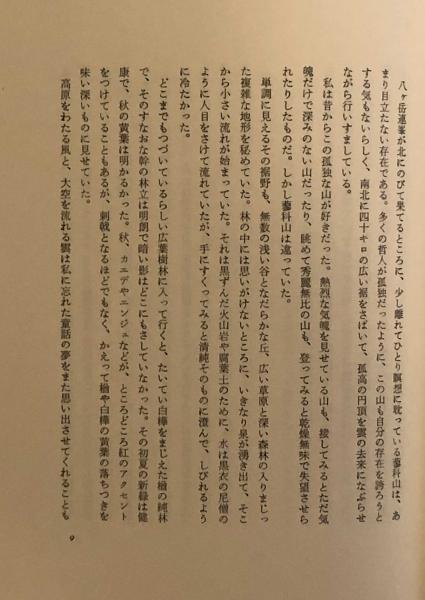 八ヶ岳連峯が北にのびて果てるところに、少し離れてひとり瞑想に耽っている蓼科山は、あ
まり目立たない存在である。多くの哲人が孤独だったように、この山も自分の存在を誇ろうと
する気もないらしく、南北に四十キロの広い裾をさばいて、孤高の円頂を雲の去来になぶらせ
ながら行いすましている。
私は昔からこの孤独な山が好きだった。熱烈な気魄を見せている山も、接してみるとただ気
魄だけで深みのない山だったり、眺めて秀麗無比の山も、登ってみると乾燥無味で失望させら
れたりしたものだ。しかし蓼科山は違っていた。
単調に見えるその裾野も、無数の浅い谷となだらかな丘、広い草原と深い森林の入りまじっ
た複雑な地形を秘めていた。林の中には思いがけないところに、いきなり泉が湧き出て、そこ
から小さい流れが始まっていた。それは黒ずんだ火山岩や腐葉土のために、水は黒衣の尼僧の
ように人目をさけて流れていたが、手にすくってみると清純そのものに澄んで、しびれるよう
に冷たかった。
どこまでもつづいているらしい広葉樹林に入って行くと、たいてい白樺をまじえた楢の純林
で、そのすなおな幹の林立は明朗で暗い影はどこにもさしていなかった。その初夏の新緑は健
康で、秋の黄葉は明かるかった。秋、カエデやエンジュなどが、ところどころ紅のアクセント
をつけていることもあるが、刺戟となるほどでもなく、かえって楢や白樺の黄葉の落ちつきを
味い深いものに見せていた。
高原をわたる風と、大空を流れる雲は私に忘れた童話の夢をまた思い出させてくれることも
9